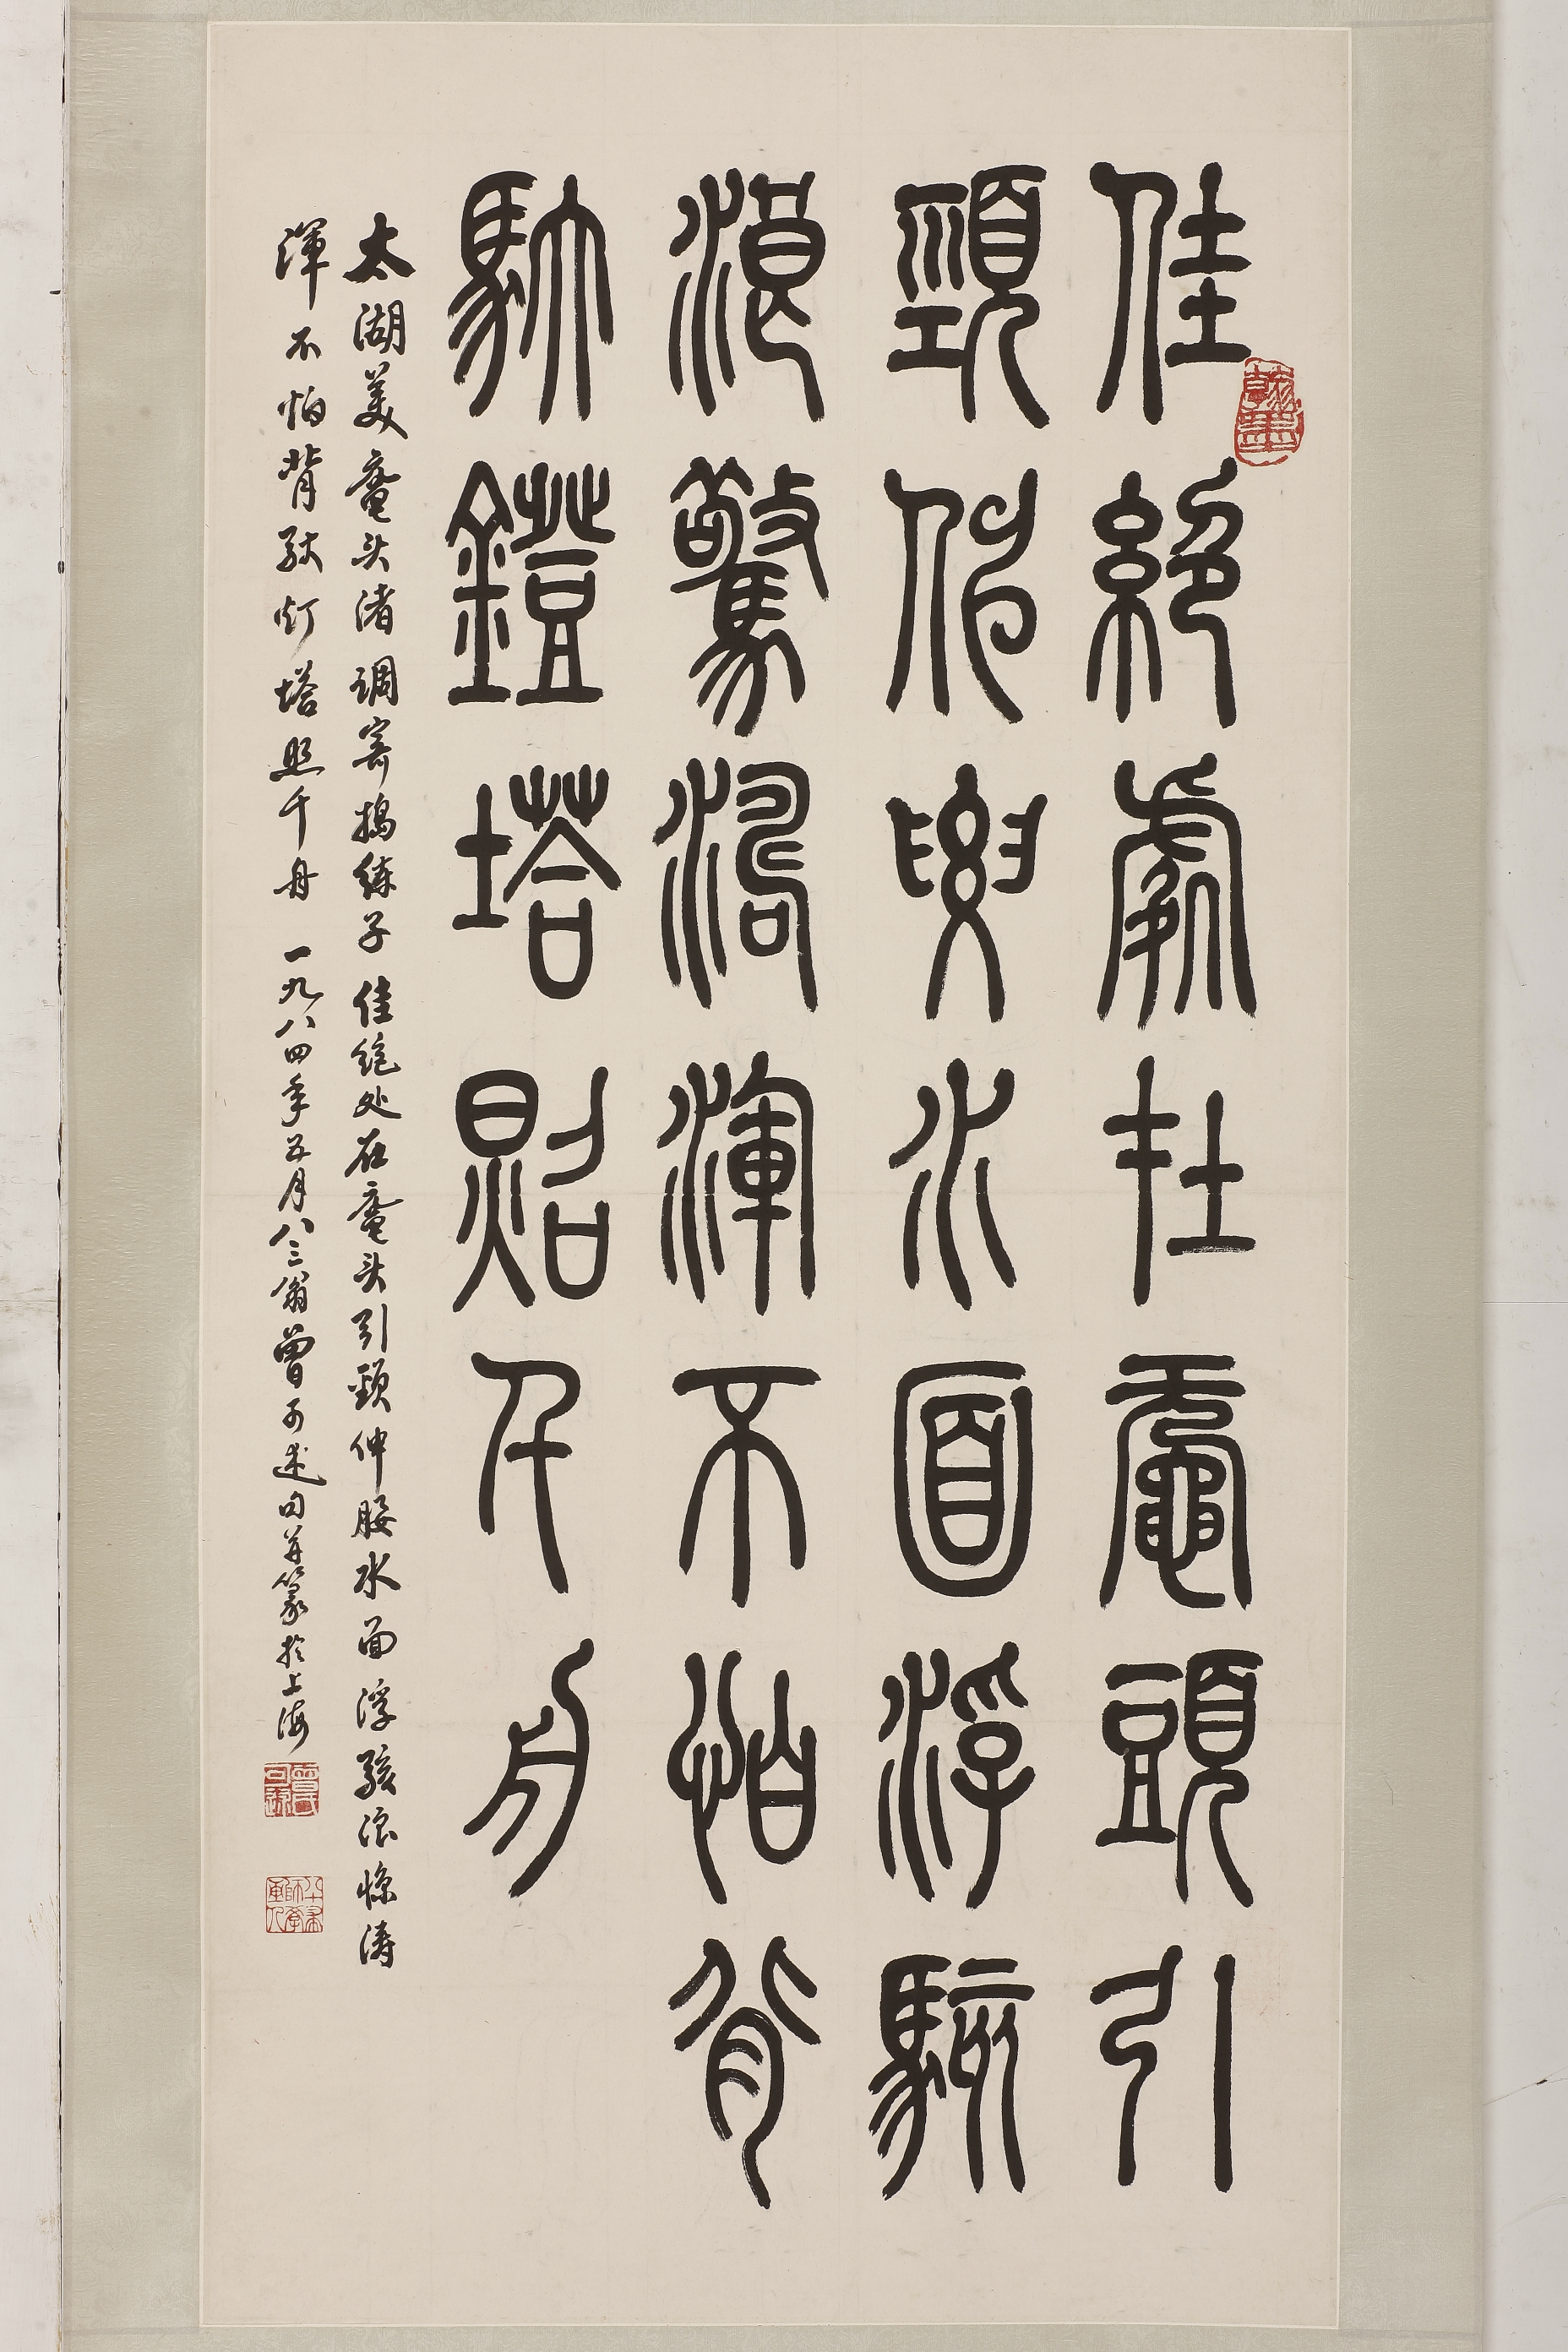 佳絕處在黿頭引
頸伸要水面浮駭
浪驚濤渾不怕背
馱鐙塔照千舟
太湖美鼋头渚调寄捣练子佳绝处在鼋头引颈伸腰水面浮骇浪惊涛
渾不怕背驮灯塔照千舟 一九八四年五月八三翁曾可述句并篆於上海